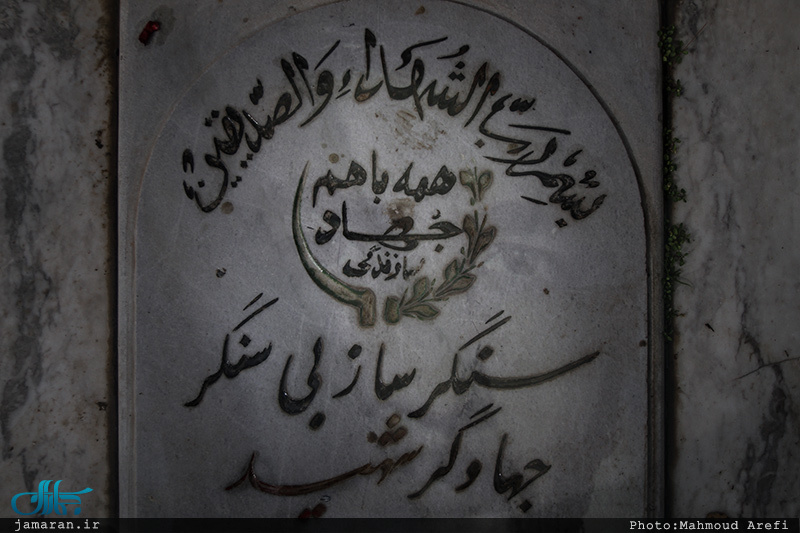 بسم رب الشهداء والصدیقین
همه با هم
جهاد
سازندگی
سنگر ساز بی سنگر
جهادگر شهید
جماران
jamaran.ir
Photo:Mahmoud Arefi